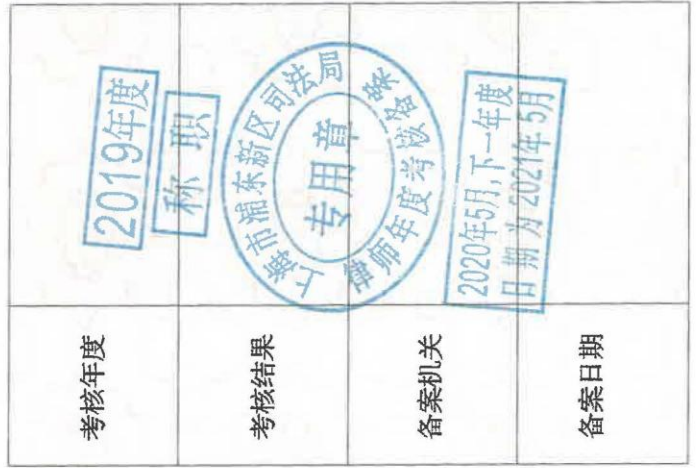 考核年度
2019年度
考核结果
称职
备案机关
上海市浦东新区司法局
专用章
律师年度考核备案
备案日期
2020年5月,下一年度
日期为2021年5月